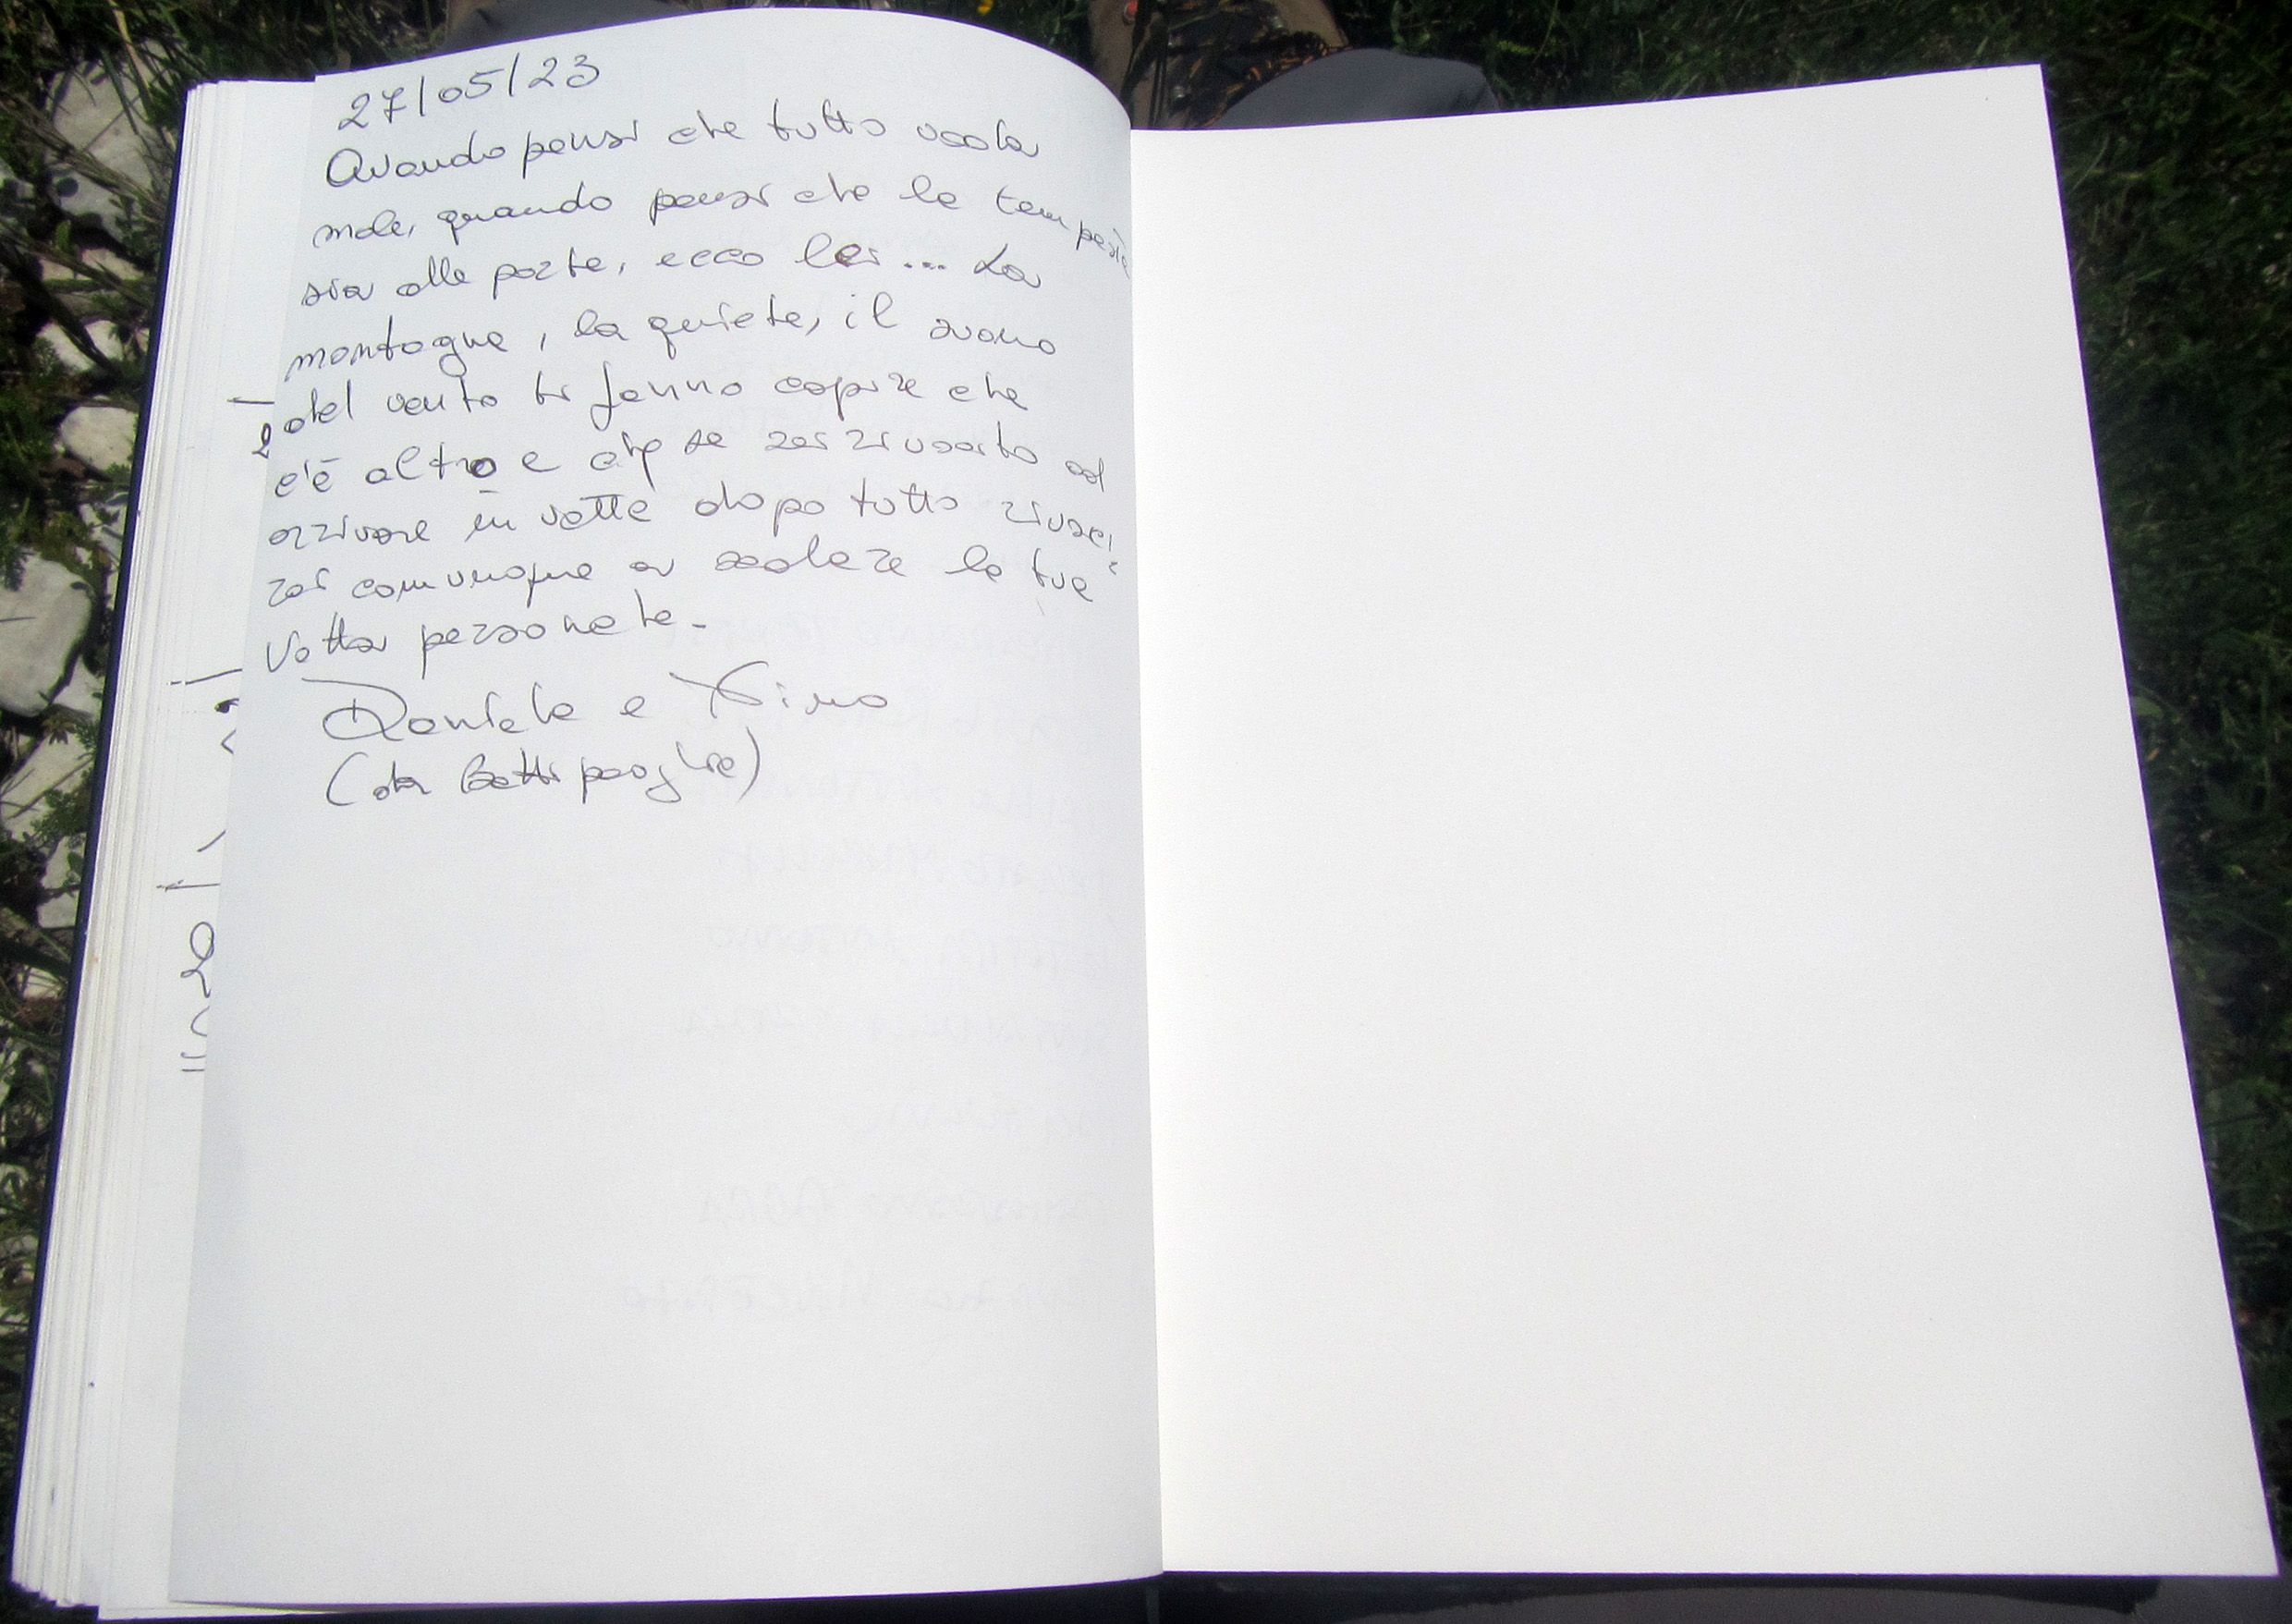 27/05/23
Quando pensi che tutto vada
male, quando pensi che la tempesta
sia alle porte, ecco lei... La
montagna, la quiete, il suono
del vento ti fanno capire che
c'è altro e che se sei riuscito ad
arrivare in vetta dopo tutto riusci
rai comunque a scalare la tua
vetta personale.
Daniela e
(da Battipaglia)